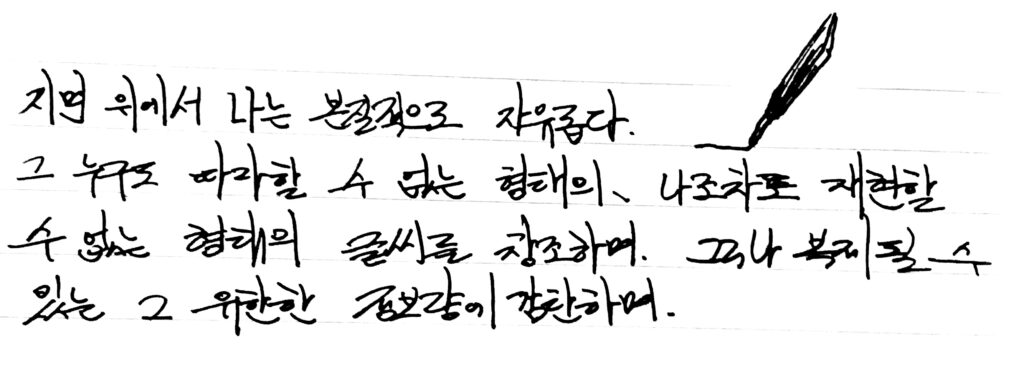 지면 위에서 나는 본질적으로 자유롭다.
그 누구도 따라할 수 없는 형태의, 나조차도 재현할
수 없는 형태의 글씨를 창조하며. 그러나 복제될 수
있는 그 유한한 정보량에 감탄하며.